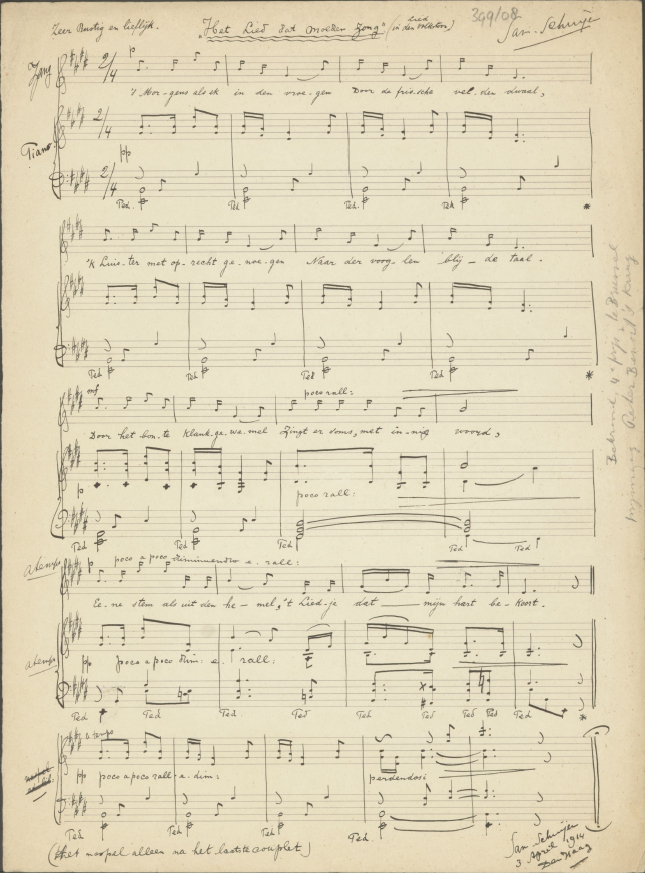 Zeer Rustig en lieflijk.
„Het Lied dat moeder zong"
(in den volkston)
Lied
399/08
Jan. Schuije
Zang
2/4
p
's Mor-gens als ek in den vroe-gen Door de fris-sche vel-den dwaal,
Piano
2/4
pp
2/4
Ped. Ped Ped. Ped *
'k Luis-ter met op-recht ge-noe-gen Naar der voog-len blij-de taal.
Ped Ped Ped Ped *
mf poco rall:
Door het bon-te klank-ge-wa-mel Zingt er soms, met in-nig woord,
p poco rall:
Ped Ped Ped Ped Ped
a tempo p poco a poco diminuendro e. rall:
Ee-ne stem als uit den he-mel, 't Lied-je dat mijn hart be-koort.
a tempo pp poco a poco dim: e. rall:
Ped Ped Ped Ped Ped Ped Ped Ped *
a tempo
pp poco a poco rall. e. dim: perdendosi
Ped Ped Ped Ped.
(Het naspel alleen na het laatste couplet)
Jan Schuijer
3 April 1914
Den Haag